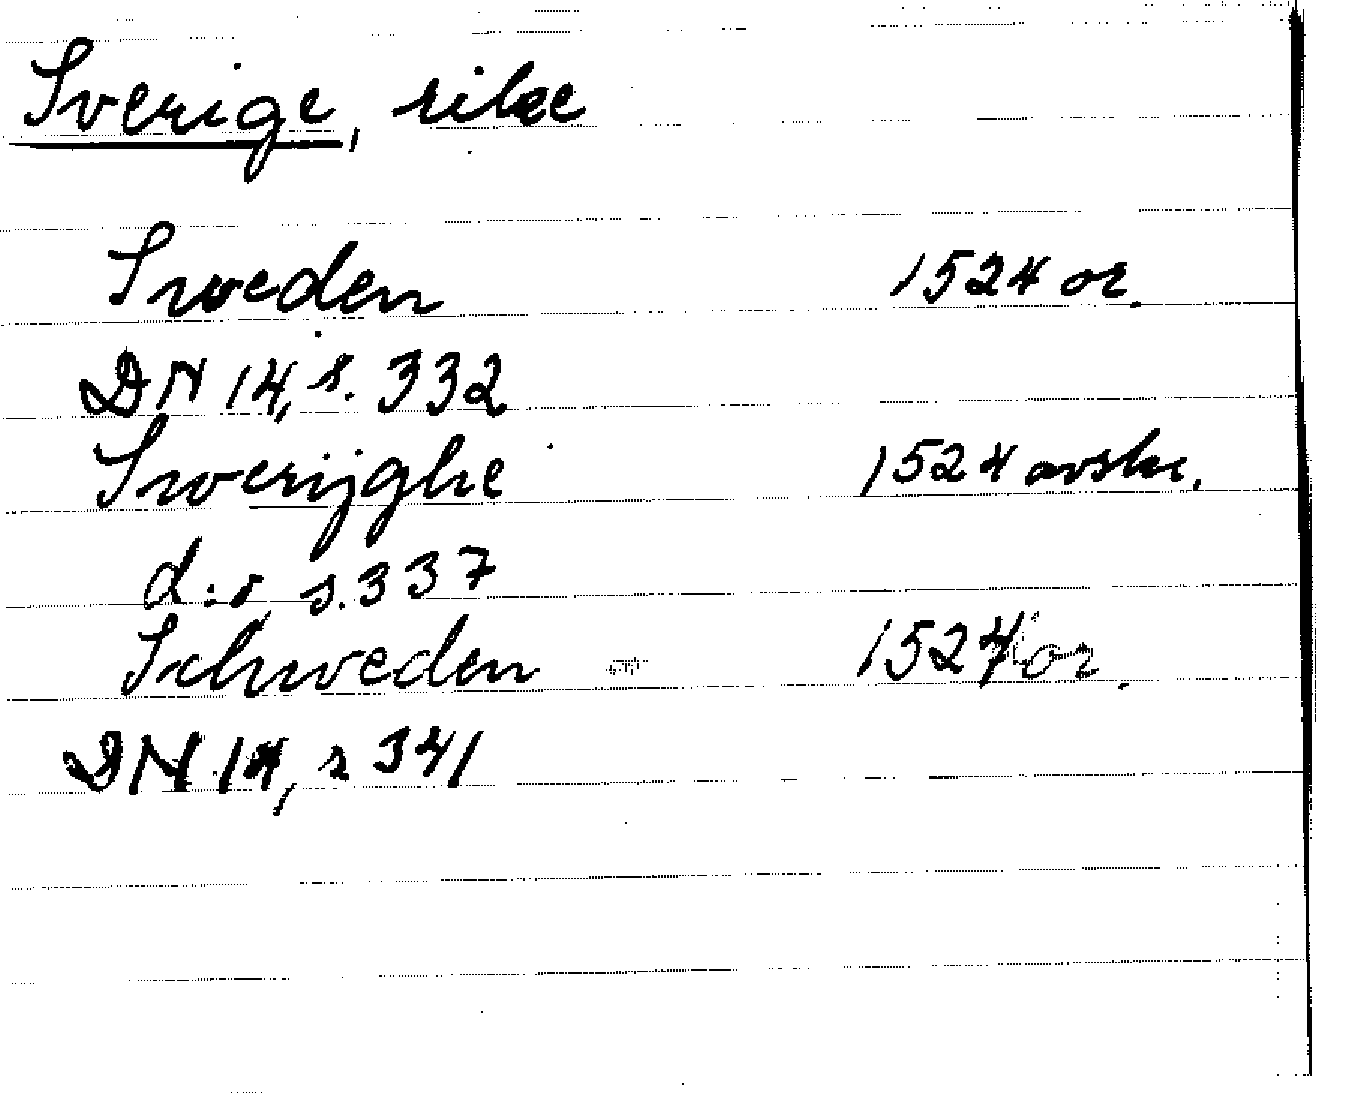 Sverige, rike
Sweden 1524 or.
DN 14, s. 332
Swerijghe 1524 avskr.
d:o s. 337
Schweden 1524 or.
DN 14, s 341